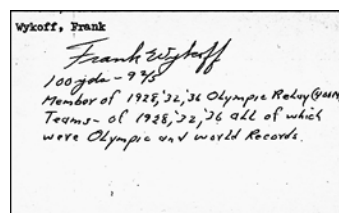 Wykoff, Frank
Frank Wykoff
100 yds - 9 2/5
Member of 1928,'32,'36 Olympic Relay (400M)
Teams - of 1928,'32,'36 all of which
were Olympic and world Records.